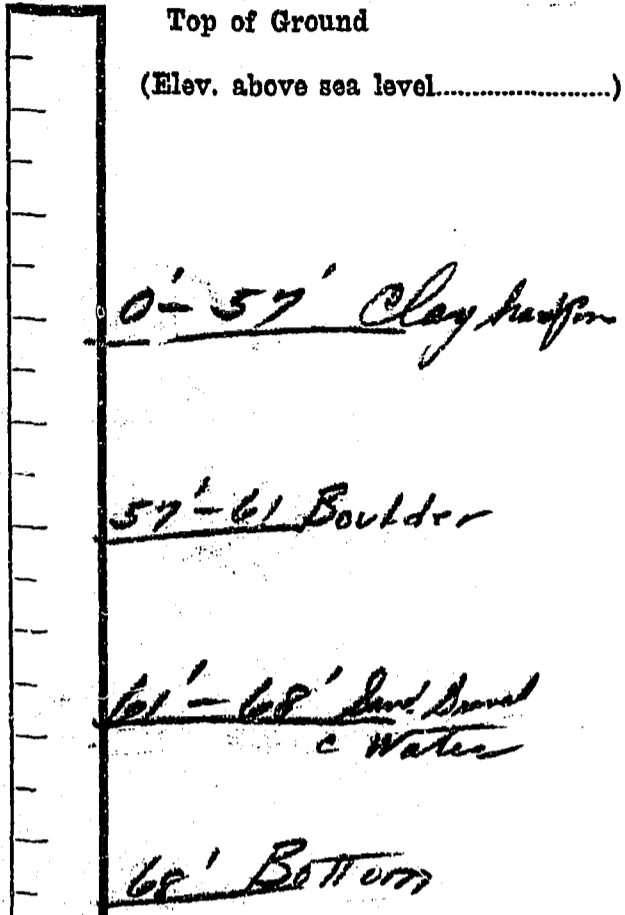 Top of Ground
(Elev. above sea level........................)
0'- 57' Clay hardpan
57'- 61 Boulder
61'- 68' Sand. Gravel
c Water
68' Bottom